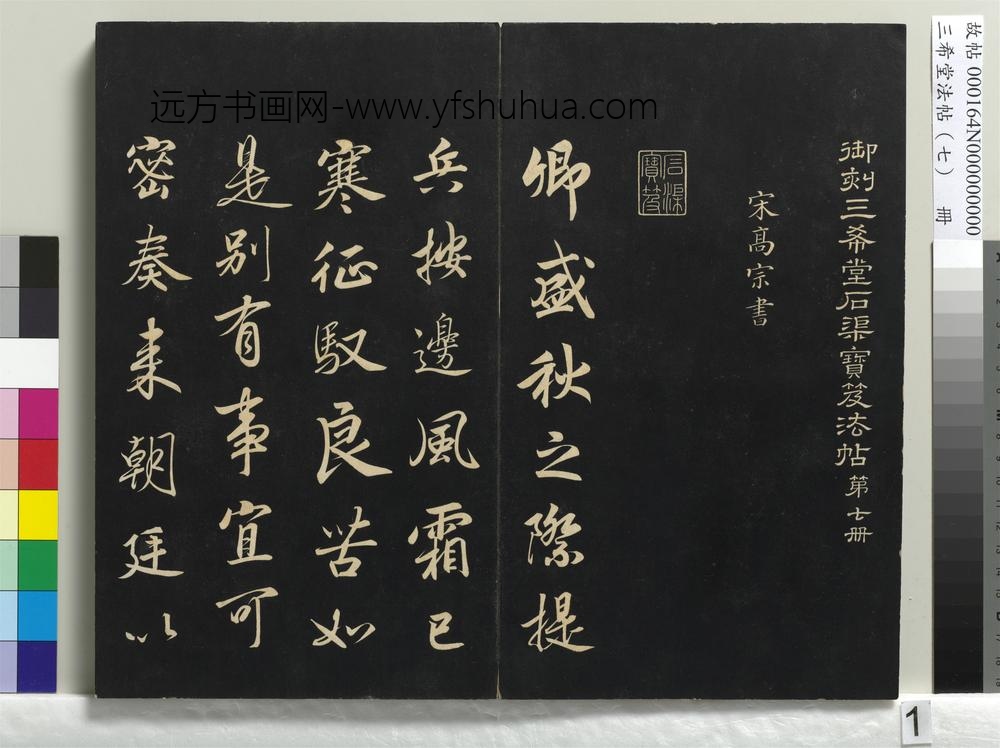 故帖 000164N000000000
三希堂法帖（七） 册
远方书画网-www.yfshuhua.com
御刻三希堂石渠寶笈法帖第七冊
宋高宗書
石渠寶笈
卿盛秋之際提
兵按邊風霜已
寒征馭良苦如
是别有事宜可
密奏来朝廷以
1